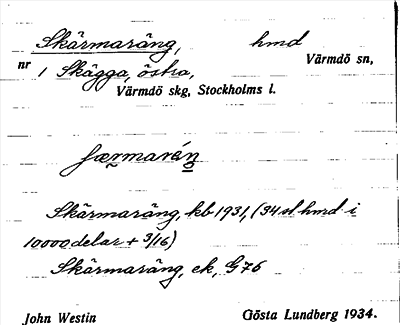 Skärmaräng, hmd
nr Värmdö sn,
1 Skägga, östra,
Värmdö skg, Stockholms l.
Skärmaräng, kb 1931, (34 st. hmd i
10000 delar + 3/16)
Skärmaräng, ek, G76
John Westin Gösta Lundberg 1934.